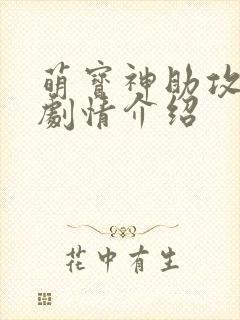 萌寳神助攻
劇情介紹
花中有生